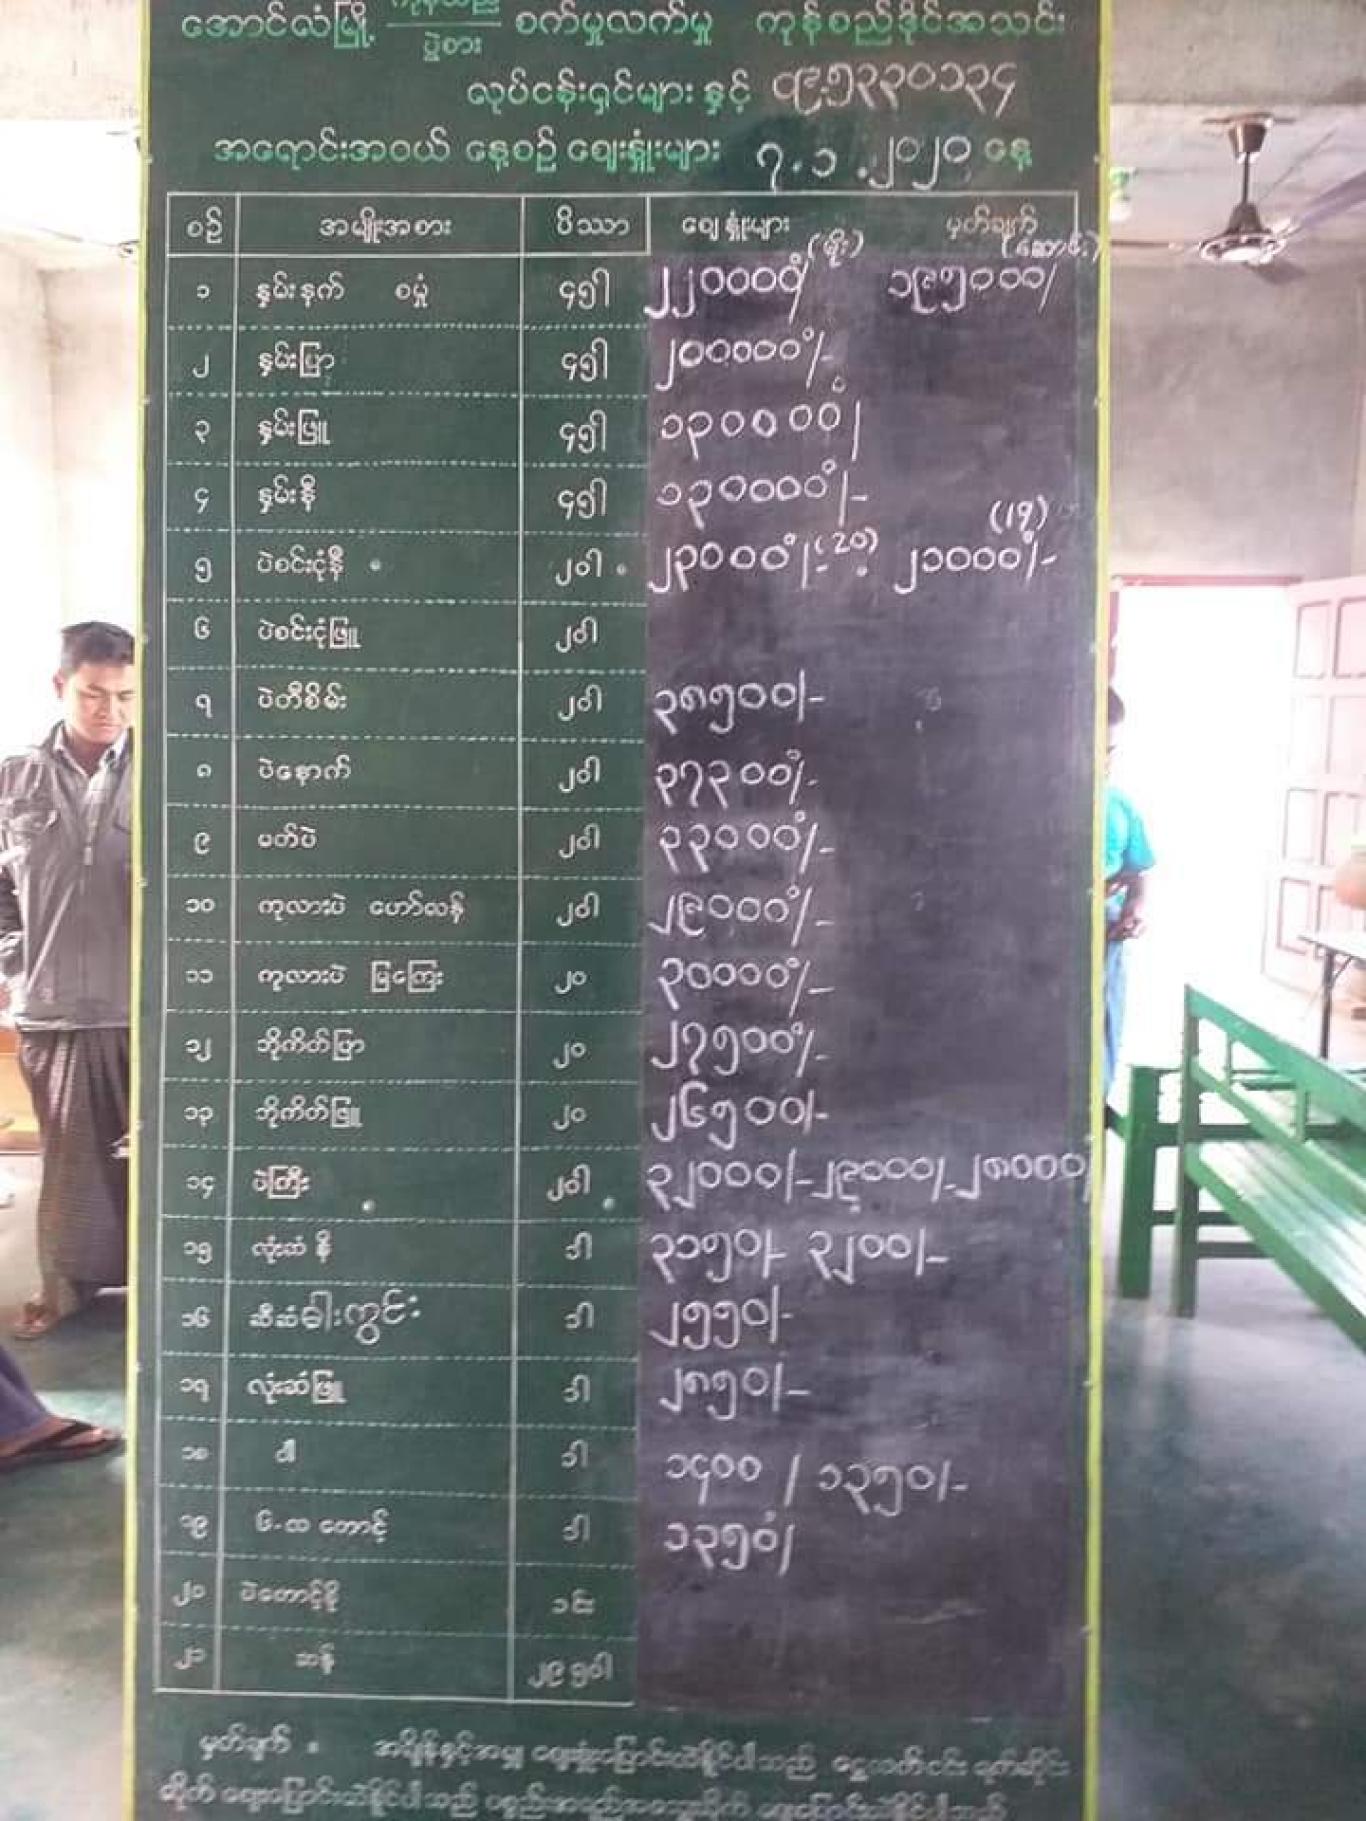 အောင်လံမြို့ ကုန်စည် စက်မှုလက်မှု ကုန်စည်ဒိုင်အသင်း
ပွဲစား
လုပ်ငန်းရှင်များ နှင့် ၀၉.၅၃၃၀၁၃၄
အရောင်းအဝယ် နေ့စဉ် ဈေးနှုံးများ ၇.၁.၂၀၂၀ နေ့
စဉ် အမျိုးအစား ပိဿာ ဈေးနှုံးများ မှတ်ချက်
(မိုး) (ဆောင်း)
၁ နှမ်းနက် စမုံ ၄၅ါ ၂၂၀၀၀၀/ ၁၉၅၀၀၀/
၂ နှမ်းပြာ ၄၅ါ ၂၀၀၀၀၀/-
၃ နှမ်းဖြူ ၄၅ါ ၁၃၀၀၀၀/
၄ နှမ်းနီ ၄၅ါ ၁၃၀၀၀၀/-
(19)
၅ ပဲစင်းငုံနီ ၂၀ါ ၂၃၀၀၀/- (20) ၂၁၀၀၀/-
၆ ပဲစင်းငုံဖြူ ၂၀ါ
၇ ပဲတီစိမ်း ၂၀ါ ၃၈၅၀၀/-
၈ ပဲနောက် ၂၀ါ ၃၇၃၀၀/-
၉ မတ်ပဲ ၂၀ါ ၃၃၀၀၀/-
၁၀ ကုလားပဲ ဟော်လန် ၂၀ါ ၂၉၀၀၀/-
၁၁ ကုလားပဲ မြကြေး ၂၀ ၃၀၀၀၀/-
၁၂ ဘိုကိတ်ပြာ ၂၀ ၂၇၅၀၀/-
၁၃ ဘိုကိတ်ဖြူ ၂၀ ၂၆၅၀၀/-
၁၄ ပဲကြီး ၂၀ါ ၃၂၀၀၀/-၂၉၀၀၀/-၂၈၀၀၀/
၁၅ လုံးဆံ နီ ဒါ ၃၁၅၀/- ၃၂၀၀/-
၁၆ ဆီဆံခါးကွင်း ဒါ ၂၅၅၀/-
၁၇ လုံးဆံဖြူ ဒါ ၂၈၅၀/-
၁၈ ငါ ဒါ ၁၄၀၀ / ၁၃၅၀/-
၁၉ ၆-လ တောင့် ဒါ ၁၃၅၀/
၂၀ ပဲတောင့်စို ၁င်း
၂၁ ဆန် ၂၉.၅၀ါ
မှတ်ချက် ။ အချိန်နှင့်အမျှ ဈေးနှုံးပြောင်းလဲနိုင်ပါသည်